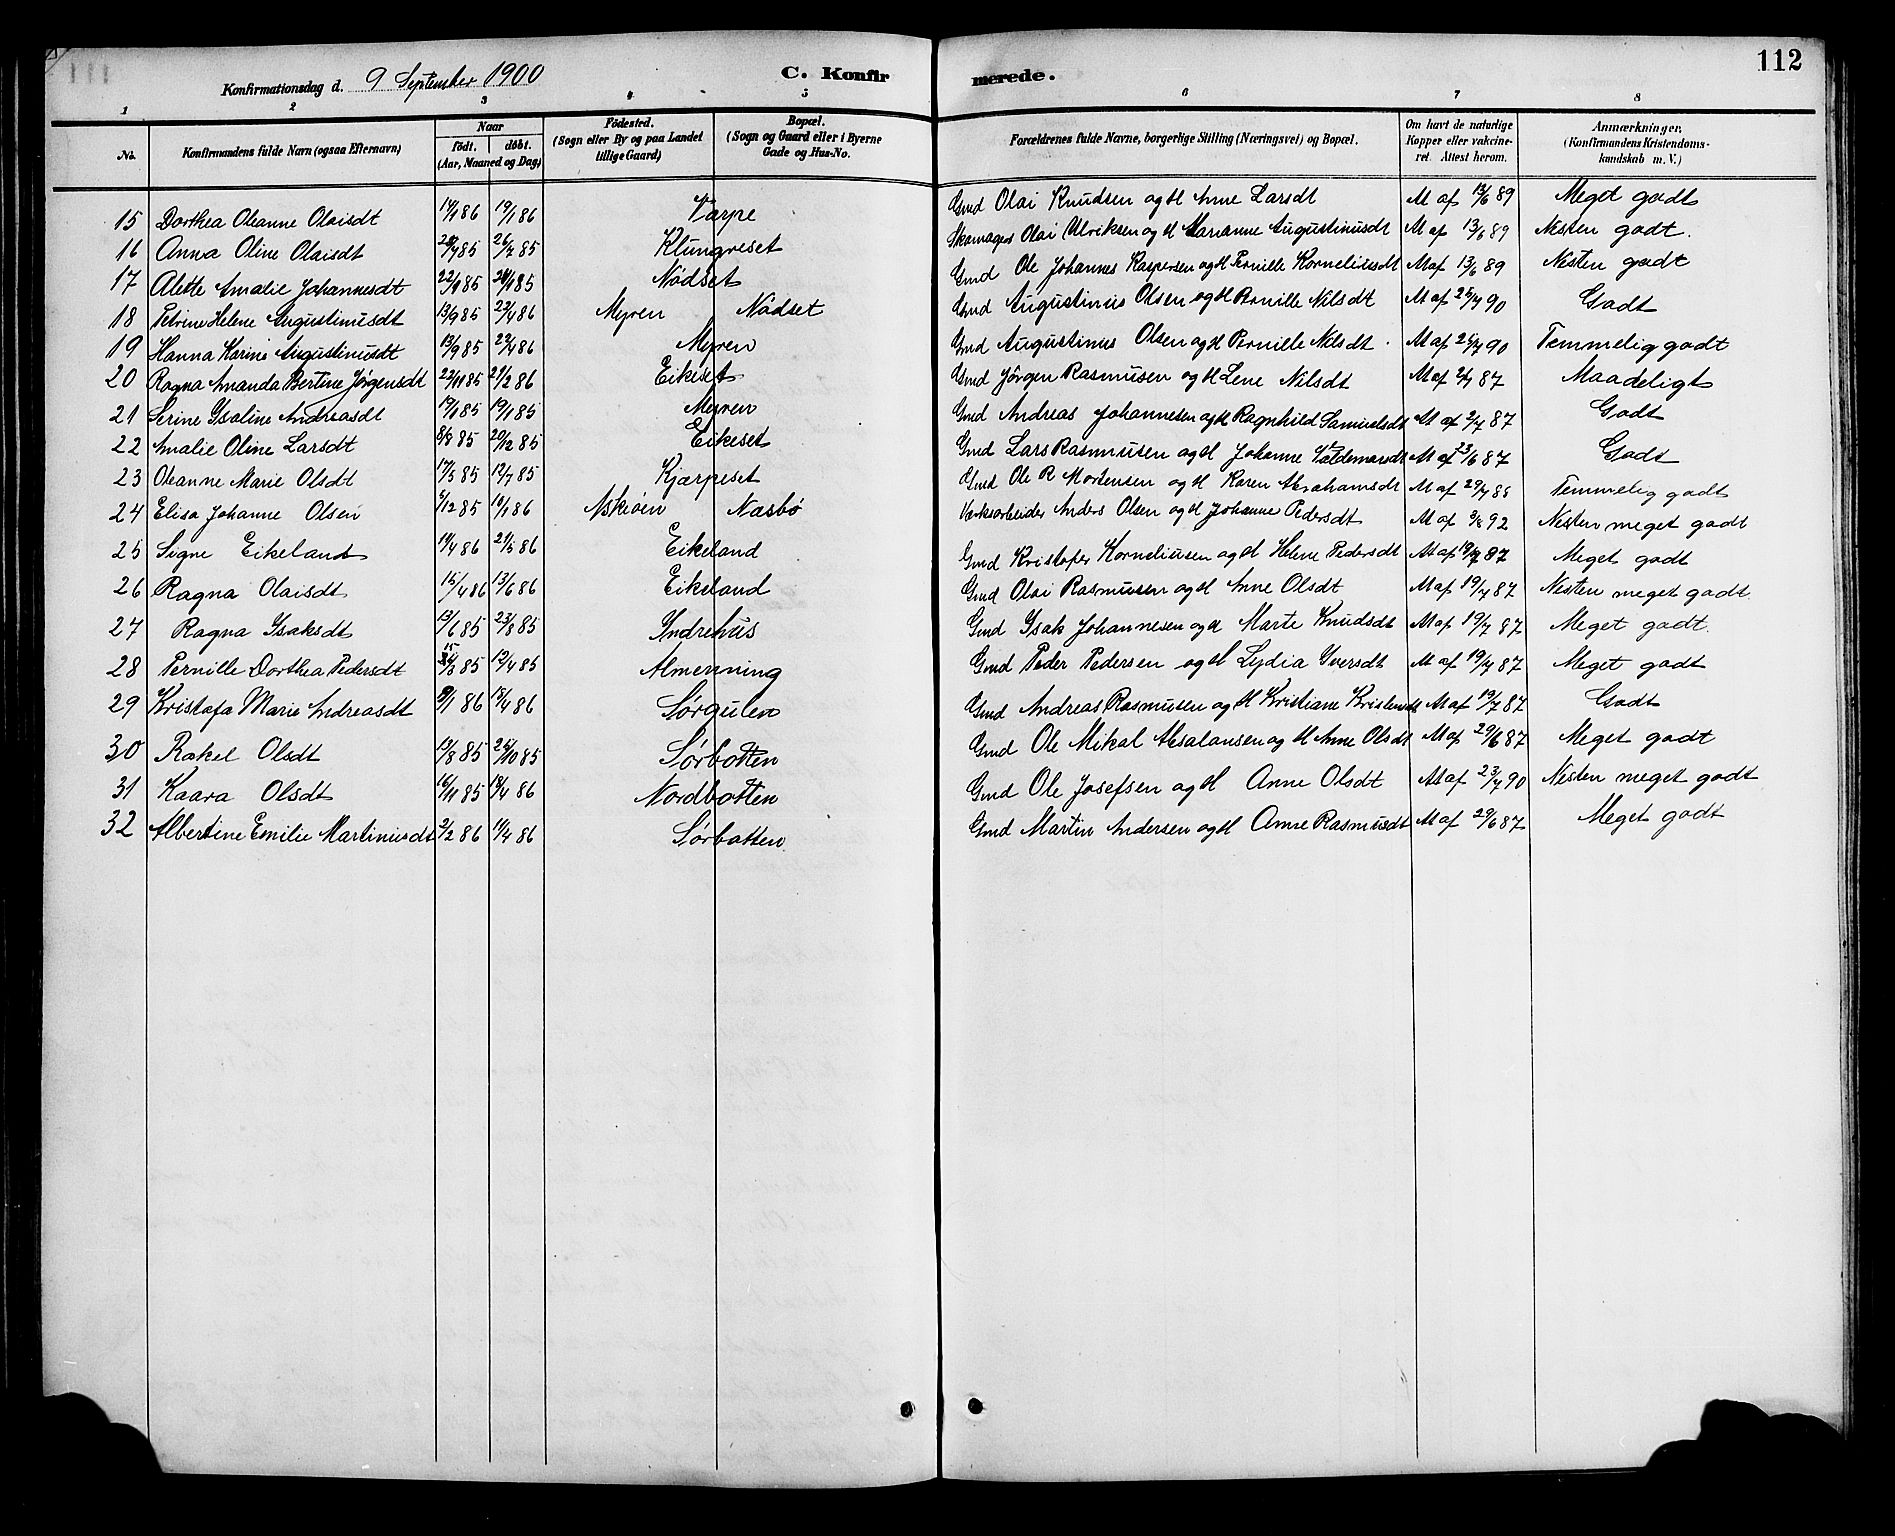 112
Konfirmationsdag d. 9 September 1900
C. Konfirmerede.
1 2 3 4 5 6 7 8
No. Konfirmandens fulde Navn (ogsaa Efternavn) Naar födt. döbt. (Aar, Maaned og Dag) Födested. (Sogn eller By og paa Landet tillige Gaard) Bopæl. (Sogn og Gaard eller i Byerne Gade og Hus-No. Forældrenes fulde Navne, borgerlige Stilling (Næringsvei) og Bopæl. Om havt de naturlige Kopper eller vakcineret. Attest herom. Anmærkninger. (Konfirmandens Kristendomskundskab m. V.)
15 Dorthea Oleanne Olaisdt 14/1 86 19/1 86 Varpe Gmd Olai Knudsen og H Anne Larsdt M af 13/6 89 Meget godt
16 Anna Oline Olaisdt 85 26/7 85 Klungreset Skomager Olai Ulriksen og H Marianne Augustinusdt M af 13/6 89 Nesten godt.
17 Alette Amalie Johannesdt 85 85 Nödset Gmd Ole Johannes Kaspersen og H Pernille Korneliusdt M af 13/6 89 Nesten godt
18 Petrine Helene Augustinusdt 13/9 85 22/4 86 Myren Nödset Gmd Augustinus Olsen og H Pernille Nilsdt M af 25/7 90 Godt
19 Hanna Karine Augustinusdt 13/9 85 22/4 86 Myren Gmd Augustinus Olsen og H Pernille Nilsdt. M af 25/7 90 Temmelig godt
20 Ragna Amanda Bertine Jörgensdt 22/11 85 21/2 86 Eikeset Gmd Jörgen Rasmusen og H Lene Nilsdt M af 2/7 87 Maadeligt
21 Serine Ysaline Andreasdt 19/1 85 19/1 85 Myren Gmd Andreas Johannesen og H Ragnhild Samuelsdt M af 2/7 87 Godt
22 Amalie Oline Larsdt 8/8 85 20/12 85 Eikeset Gmd Lars Rasmusen og H Johanne Valdemarsdt M af 23/6 87 Godt
23 Oleanne Marie Olsdt 17/5 85 12/7 85 Kjærpeset Gmd Ole R Mortensen og H Karen Abrahamsdt M af 29/7 Temmelig godt
24 Elisa Johanne Olsen 5/12 85 10/1 86 Askiöen Næsbö Værksarbeider Anders Olsen og H Johanne Pedersdt M af 3/8 92 Nesten meget godt
25 Signe Eikeland 11/4 86 21/5 86 Eikeland Gmd Kristofer Korneliusen og H Helene Pedersdt M af 19/7 87 Meget godt
26 Ragna Olaisdt 15/4 86 13/6 86 Eikeland Gmd Olai Rasmusen og H Anne Olsdt M af 19/7 87 Nesten meget godt.
27 Ragna Ysaksdt 13/6 85 23/8 85 Yndrehus Gmd Ysak Johannesen og H Marte Knudsdt M af 19/7 87 Meget godt.
28 Pernille Dorthea Pedersdt 15/3 85 12/4 85 Almenning Gmd Peder Pedersen og H Lydia Yversdt M af 19/7 87 Meget godt
29 Kristofa Marie Andreasdt 9/1 86 18/4 86 Sørgulen Gmd Andreas Rasmusen og H Kristiane Kristensdt M af 19/7 87 Godt
30 Rakel Olsdt 19/8 85 25/10 85 Sørbotten Gmd Ole Mikal Absalonsen og H Anne Olsdt M af 29/6 87 Meget godt
31 Kaara Olsdt 16/11 85 18/4 86 Nordbotten Gmd Ole Josefsen og H Anne Olsdt M af 23/7 90 Nesten meget godt
32 Albertine Emilie Martinusdt 2/2 86 11/4 86 Sørbotten. Gmd Martin Andersen og H Anne Rasmusdt M af 29/6 87 Meget godt